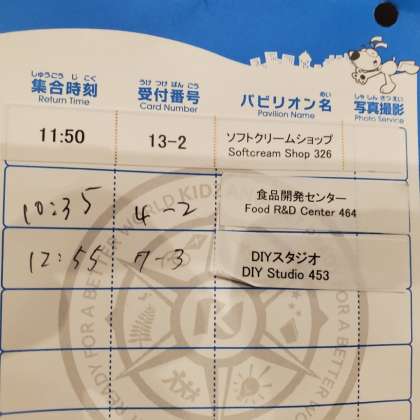 しゅうごう じ こく うけ つけ ばん ごう めい しゃ しん さつ えい
集合時刻 受付番号 パビリオン名 写真撮影
Return Time Card Number Pavilion Name Photo Service
11:50 13-2 ソフトクリームショップ
Softcream Shop 326
10:35 4-2 食品開発センター
Food R&D Center 464
12:55 7-3 DIYスタジオ
DIY Studio 453
READY FOR A BETTER WORLD KIDZANIA